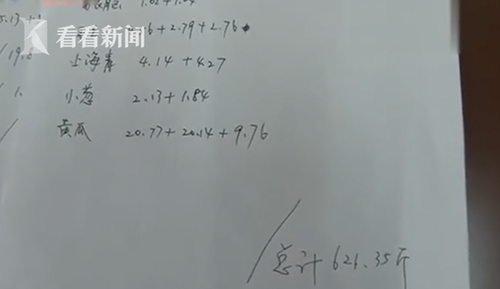 看看新闻
5.13+
1.62+1.64
+2.79+2.76
19.6
上海青 4.14+4.27
1.
小葱 2.13+1.84
黄瓜 20.77+20.14+9.76
总计 621.35斤